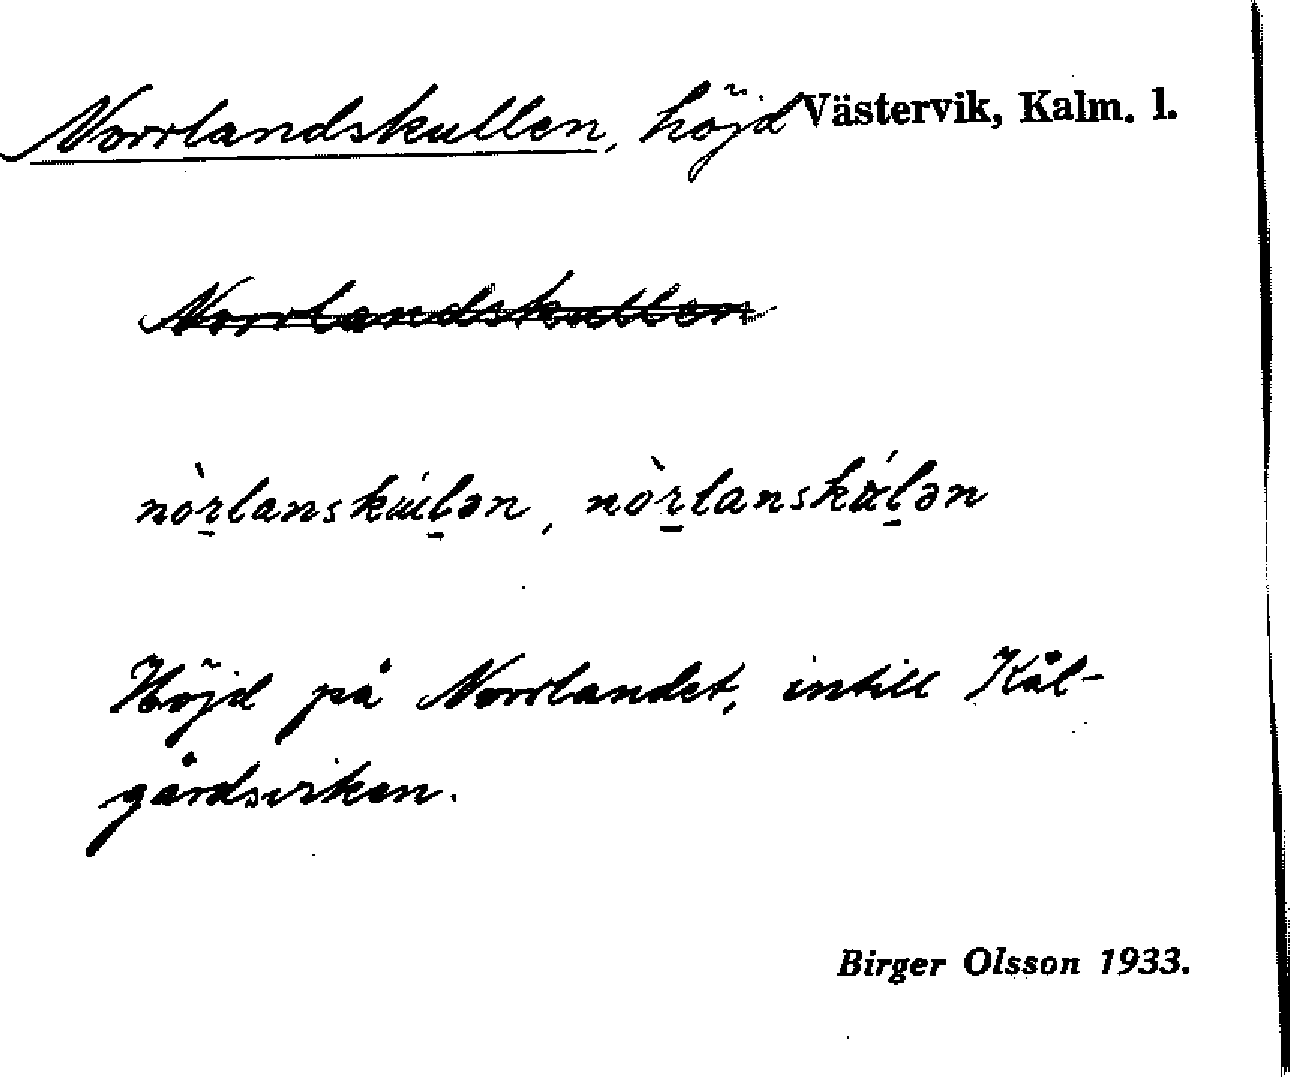 Norrlandskullen, höjd Västervik, Kalm. l.
Norrlandskullen
nòr̲lanskúl̲ən, nòr̲lanskúl̲ən
Höjd på Norrlandet, intill Kål-
gårdsviken.
Birger Olsson 1933.